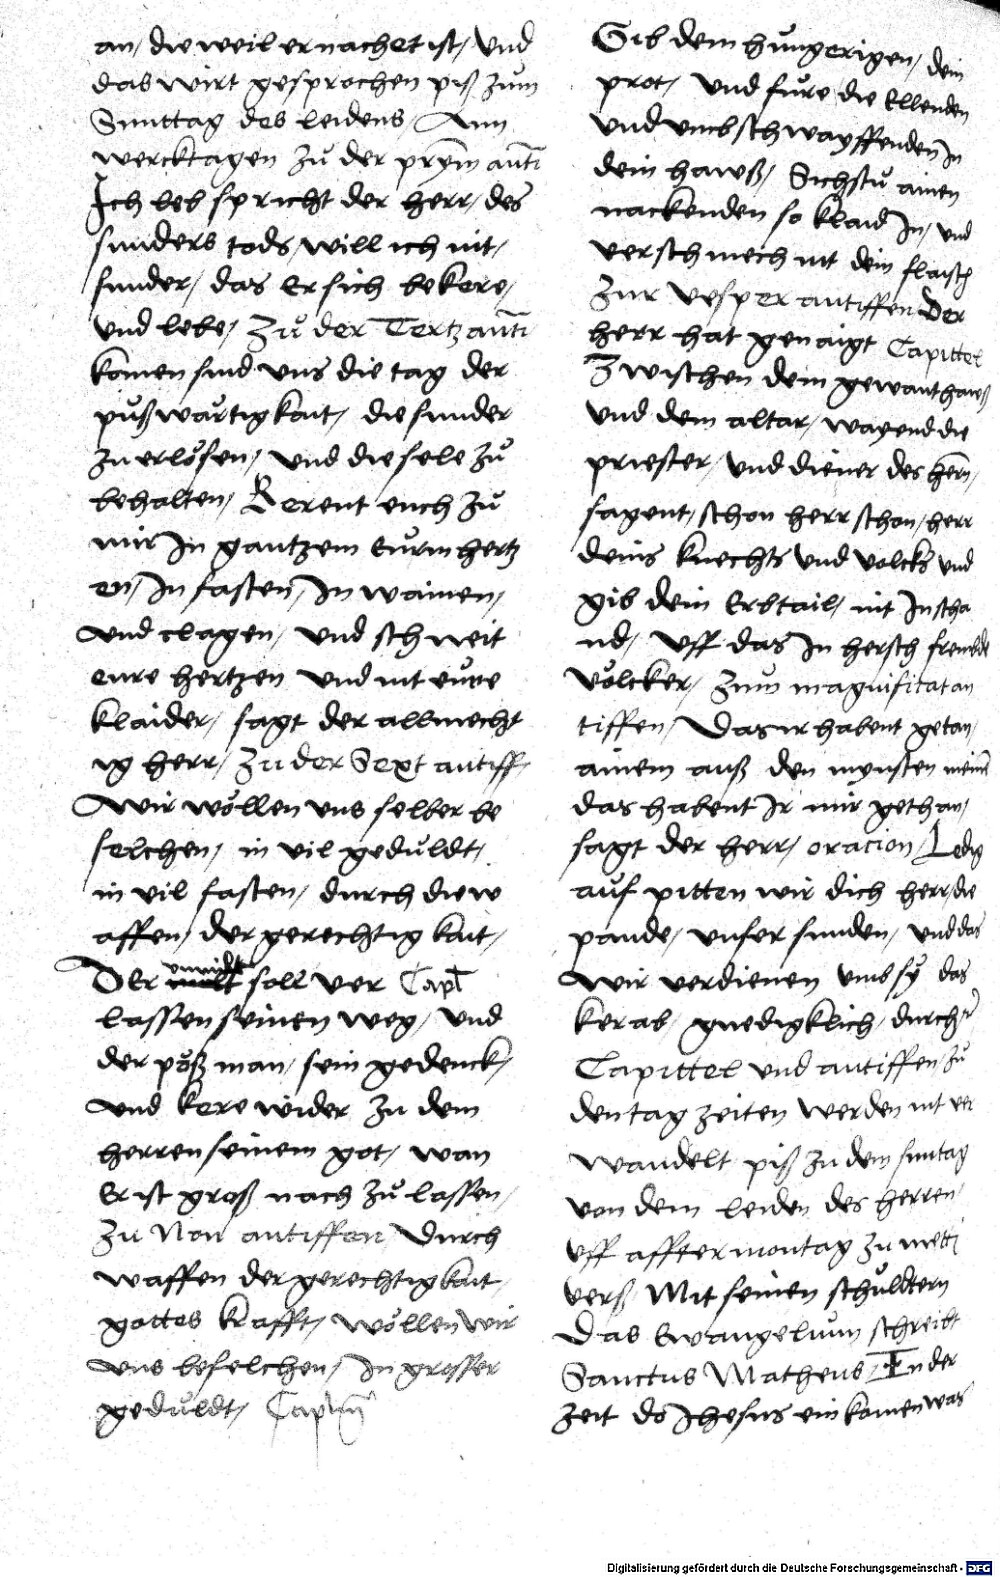 an/ die weil er nachet ist/ Und
das wirt gesprochen piß zům
Sunttag des leidens/ Ann
wercktagen zů der prym anti
Ich leb spricht der herr/ des
sunders tods/ will ich nit/
sunder/ das Er sich bekere/
und lebe/ Zů der Tertz anti
komen sind uns die tag der
půßwürtigkait/ die sunder
zu erlösen/ und die sele zů
behalten/ Berent euch zů
mir In gantzem Eurm hertz
en/ In fasten/ In wainen/
und clagen/ und schneit
eure hertzen und nit eure
klaider/ sagt der allmecht
ig herr/ Zu der Sext antiff/
Wir wöllen uns selber be
felchen/ in vil geduldt/
in vil fasten/ durch die w
affen/ der gerechtigkait/
Der soll ver Capl
lassen seinen weg/ und
der pöß man/ sein gedenck/
und kere wider zu dem
herren seinem got/ wan
Er ist groß nach zů lassen/
Zu Non antiffen Durch
waffen der gerechtigkait
gottes krafft/ wöllen wir
uns befelchen/ In grosser
geduldt/
Gib dem hungerigen/ dein
prot/ und fure die Ellenden
und umbschwayffenden In
dein hawß/ Sichstu ainen
nackenden so klaid In/ und
verschmech nit dein flaisch
Zur vesper antiffen Der
herr hat genaigt Capittel
Zwischen dem gewanthawß
und dem altar/ wayend die
priester/ und diener des hern/
sagent/ schon herr schon/ herr
deins knechts und volcks und
gib dein Erbtail/ nit In scha
nd/ uff das In hersch frembde
völcker/ Zum magnificat an
tiffen/ Das ir habent getan/
ainem auß den mynsten meinen
das habent Ir mir gethan/
sagt der herr/ oracion/ Ledig
auf pitten wir dich herr/ die
pande/ unser sunden/ und das
wir verdienen umb sy das
ker ab/ gnedigklich/ durch
Capittel und antiffen/ zů
den tag zeiten werden nit ver
wandelt piß zu dem suntag
von dem leiden des herren/
uff afftermontag zu metti
verß/ Mit seinen schuldtern
Das Ewangelium schreibt
Sanctus Matheus/ In der
zeit do Jhesus ein komen was
Digitalisierung gefördert durch die Deutsche Forschungsgemeinschaft - DFG